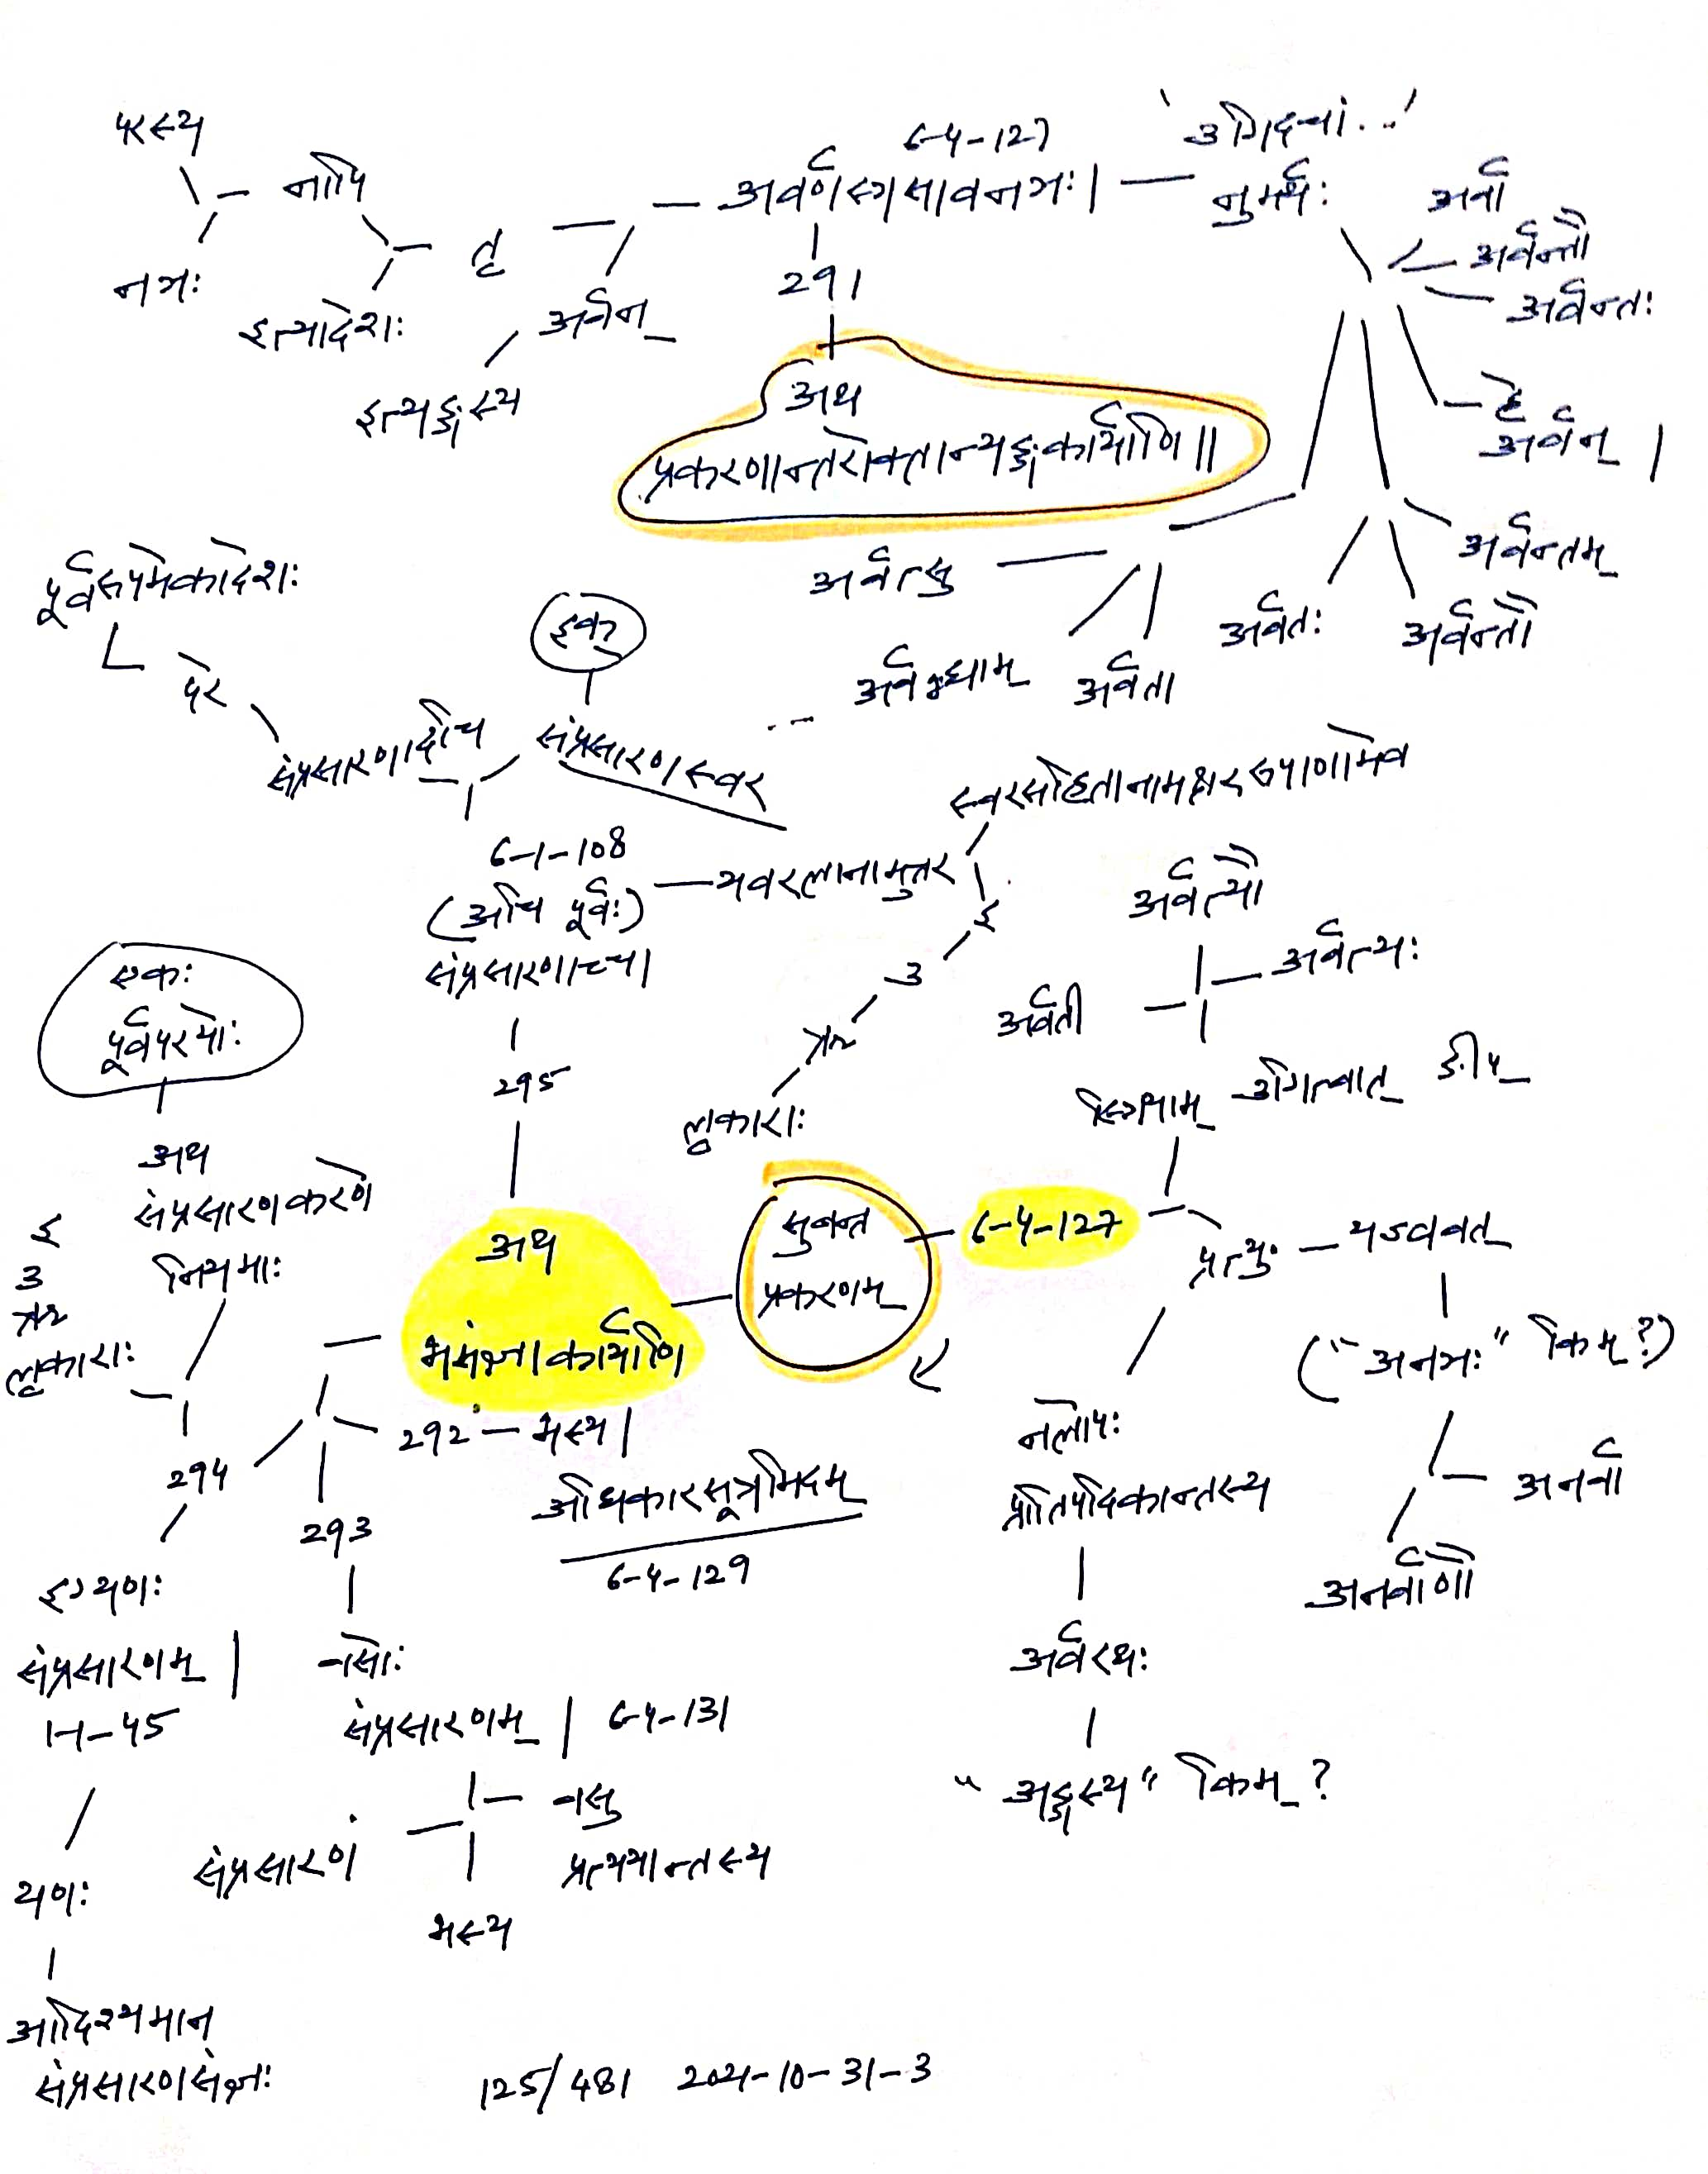 परस्य
नापि
नञः
इत्यादेशः
तृ
अर्वन्
इत्यङ्गस्य
6-4-127
अर्वणस्त्रसावनञः|
291
'उगिदचां...'
नुमर्थः
अर्वा
अर्वन्तौ
अर्वन्तः
हे
अर्वन् |
अर्वन्तम्
अर्वन्तौ
अर्वतः
अर्वता
अर्वद्भ्याम्
अर्वत्सु
...
अथ
प्रकरणान्तरोक्तान्यङ्गकार्याणि॥
पूर्वरूपमेकादेशः
परे
संप्रसारणादचि
इक्
संप्रसारणस्वर
6-1-108
(अचि पूर्वः)
संप्रसारणाच्च|
295
यवरलानामुत्तर
स्वरसहितानामक्षररूपाणामेव
इ
उ
ऋ
लृकाराः
अर्वत्यौ
अर्वत्यः
अर्वती
स्त्रियाम् उगित्वात् ङीप्
एकः
पूर्वपरयोः
अथ
संप्रसारणकरणे
नियमाः
इ
उ
ऋ
लृकाराः
294
अथ
भसंज्ञाकार्याणि
सुबन्त
प्रकरणम्
6-4-127
प्रत्यु
यज्ववत्
("अनञः" किम्?)
अनर्वा
अनर्वाणौ
नलोपः
प्रातिपदिकान्तस्य
अर्वरथः
"अङ्गस्य" किम्?
292 – भस्य |
अधिकारसूत्रमिदम्
6-4-129
293
वसोः
संप्रसारणम् | 6-4-131
वसु
प्रत्ययान्तस्य
संप्रसारणं
भस्य
इग्यणः
संप्रसारणम् |
1-1-45
यणः
आदिश्यमान
संप्रसारणसंज्ञः
125/481 2021-10-31-3